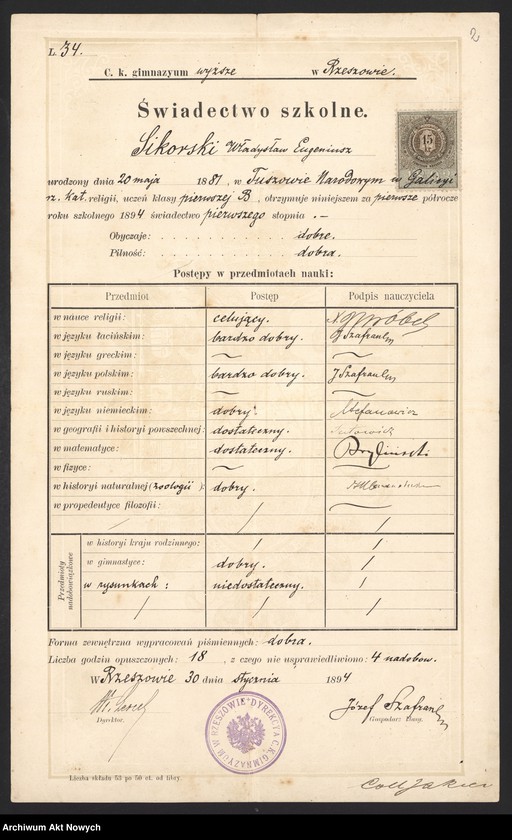 2
L. 34.
C. k. gimnazyum wyższe w Rzeszowie.
Świadectwo szkolne.
15
Sikorski Władysław Eugeniusz
urodzony dnia 20 maja 1881, w Tuszowie Narodowym w Galicyi
rz. kat. religii, uczeń klasy pierwszej B, otrzymuje niniejszem za pierwsze półrocze
roku szkolnego 1894 świadectwo pierwszego stopnia .—
Obyczaje: dobre.
Pilność: dobra.
Postępy w przedmiotach nauki:
Przedmiot Postęp Podpis nauczyciela
w nauce religii: celujący.
w języku łacińskim: bardzo dobry. J Szafran
w języku greckim: —
w języku polskim: bardzo dobry. J Szafran
w języku ruskim: —
w języku niemieckim: dobry. Stefanowicz
w geografii i historyi powszechnej: dostateczny.
w matematyce: dostateczny.
w fizyce: —
w historyi naturalnej (zoologii): dobry.
w propedeutyce filozofii: /
Przedmioty nadobowiązkowe
w historyi kraju rodzinnego: / /
w gimnastyce: dobry. /
w rysunkach: niedostateczny. /
/ / /
Forma zewnętrzna wypracowań piśmiennych: dobra.
Liczba godzin opuszczonych: 18, z czego nie usprawiedliwiono: 4 nadobow.
W Rzeszowie 30 dnia stycznia 1894
Józef Szafran
Dyrektor.
Gospodarz klasy.
DYREKCJA C. K. GIMNAZYUM W RZESZOWIE
Liczba składu 53 po 50 ct. od libry.
Archiwum Akt Nowych